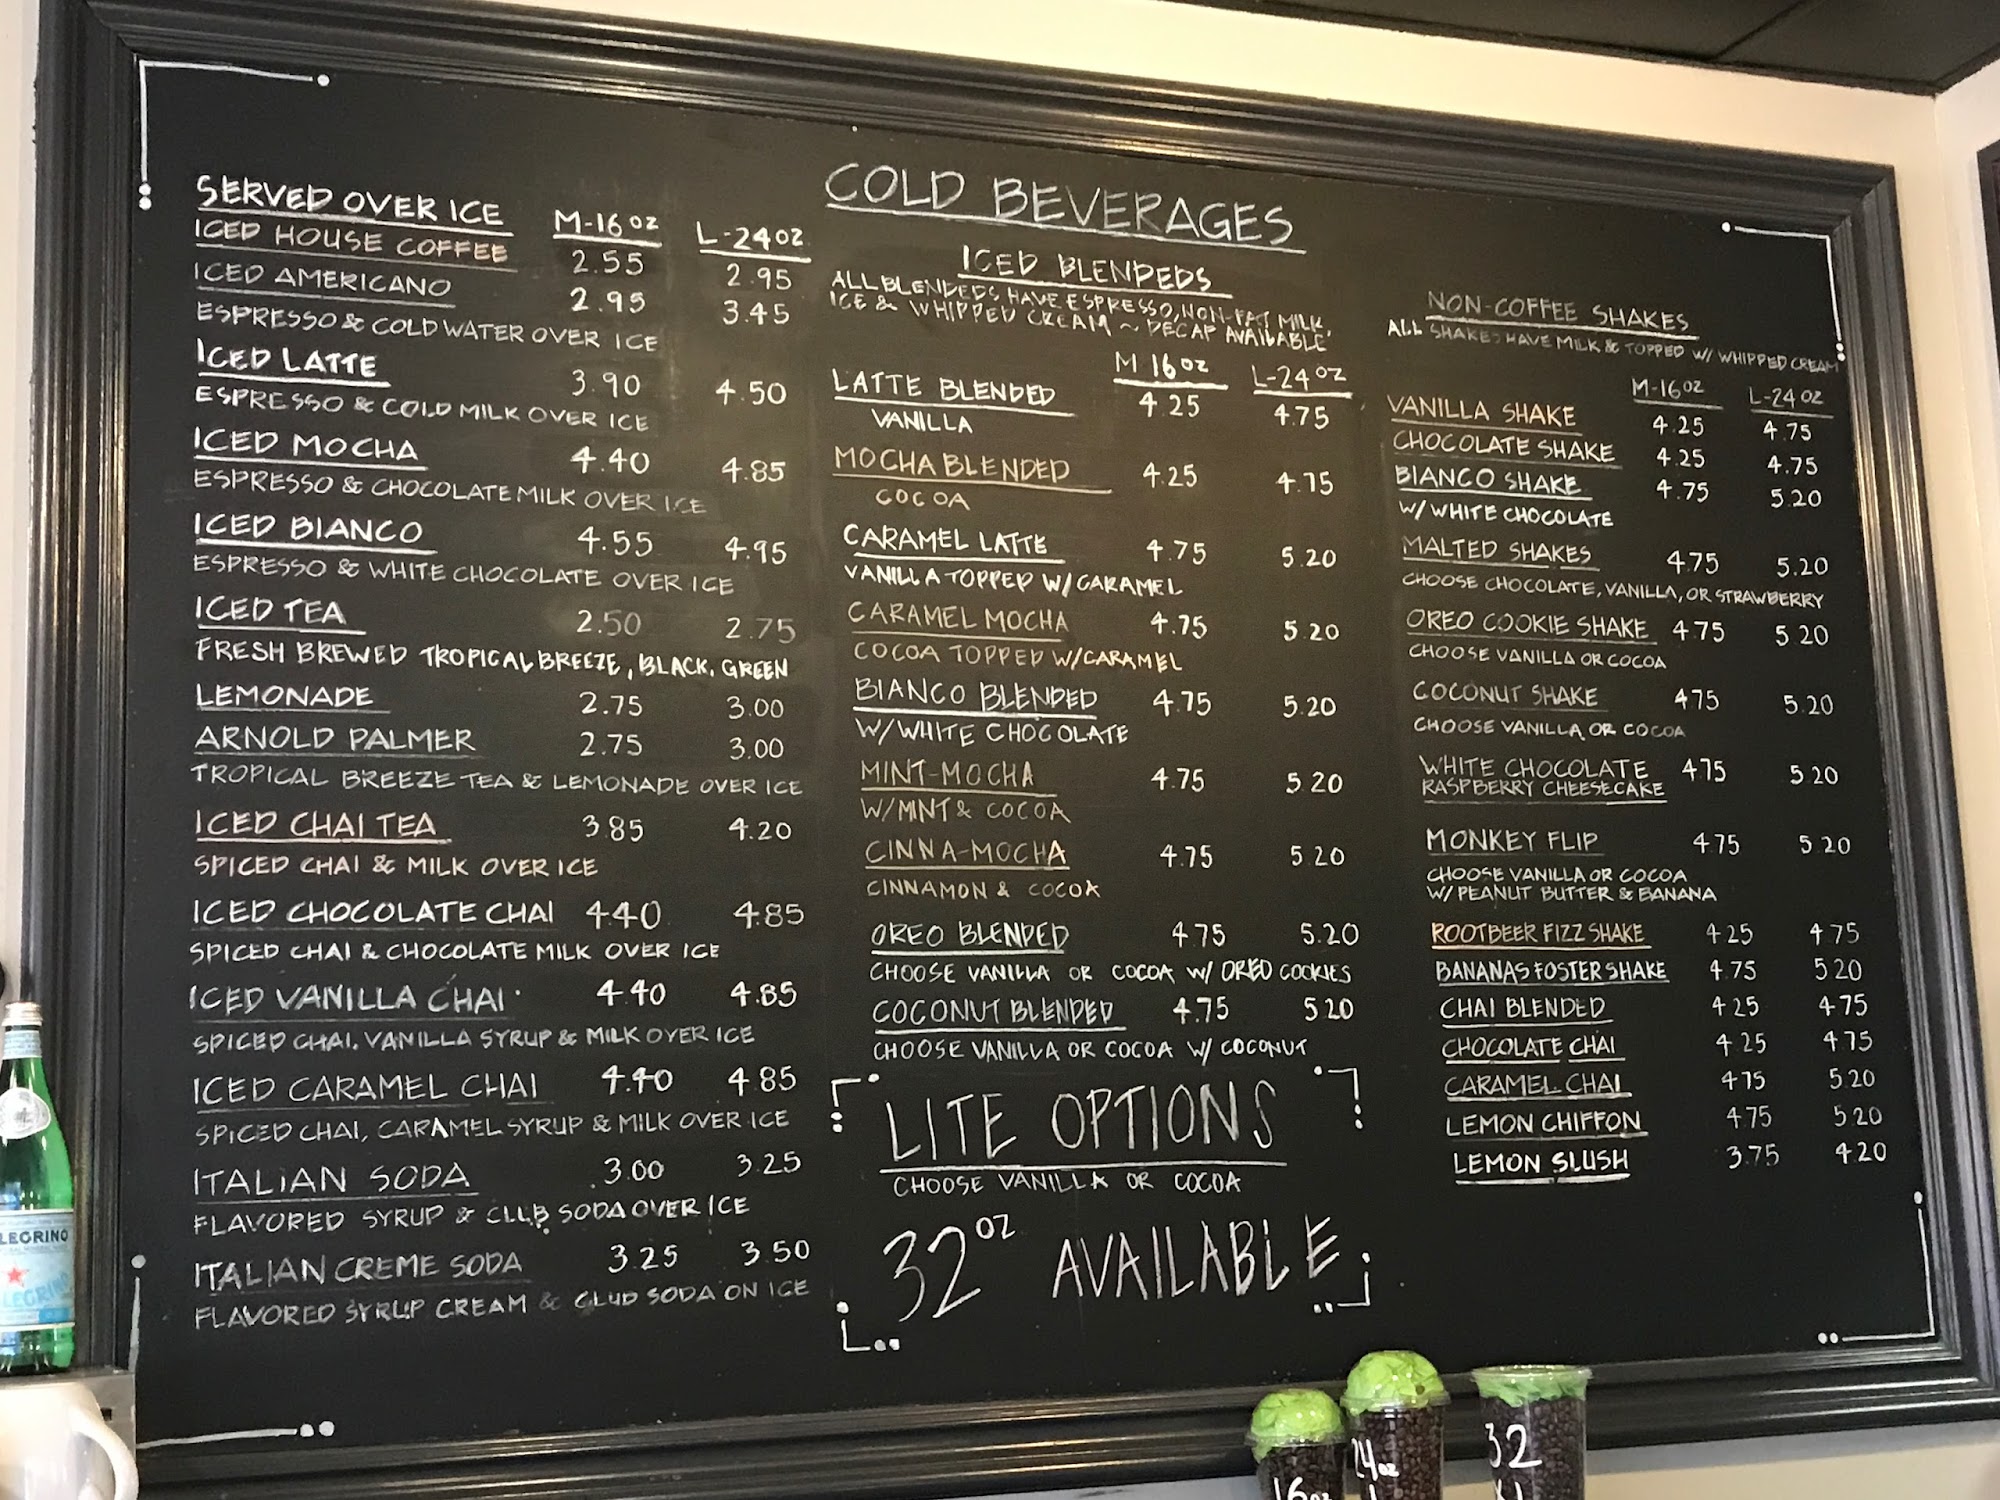 COLD BEVERAGES
SERVED OVER ICE M-16 OZ L-24 OZ
ICED HOUSE COFFEE 2.55 2.95
ICED AMERICANO 2.95 3.45
ESPRESSO & COLD WATER OVER ICE
ICED LATTE 3.90 4.50
ESPRESSO & COLD MILK OVER ICE
ICED MOCHA 4.40 4.85
ESPRESSO & CHOCOLATE MILK OVER ICE
ICED BIANCO 4.55 4.95
ESPRESSO & WHITE CHOCOLATE OVER ICE
ICED TEA 2.50 2.75
FRESH BREWED TROPICAL BREEZE, BLACK, GREEN
LEMONADE 2.75 3.00
ARNOLD PALMER 2.75 3.00
TROPICAL BREEZE TEA & LEMONADE OVER ICE
ICED CHAI TEA 3.85 4.20
SPICED CHAI & MILK OVER ICE
ICED CHOCOLATE CHAI 4.40 4.85
SPICED CHAI & CHOCOLATE MILK OVER ICE
ICED VANILLA CHAI 4.40 4.85
SPICED CHAI, VANILLA SYRUP & MILK OVER ICE
ICED CARAMEL CHAI 4.40 4.85
SPICED CHAI, CARAMEL SYRUP & MILK OVER ICE
ITALIAN SODA 3.00 3.25
FLAVORED SYRUP & CLUB SODA OVER ICE
ITALIAN CREME SODA 3.25 3.50
FLAVORED SYRUP CREAM & CLUB SODA ON ICE
ICED BLENDEDS
ALL BLENDEDS HAVE ESPRESSO, NON-FAT MILK,
ICE & WHIPPED CREAM ~ DECAF AVAILABLE
M 16 OZ L-24 OZ
LATTE BLENDED 4.25 4.75
VANILLA
MOCHA BLENDED 4.25 4.75
COCOA
CARAMEL LATTE 4.75 5.20
VANILLA TOPPED W/ CARAMEL
CARAMEL MOCHA 4.75 5.20
COCOA TOPPED W/CARAMEL
BIANCO BLENDED 4.75 5.20
W/WHITE CHOCOLATE
MINT-MOCHA 4.75 5.20
W/MINT & COCOA
CINNA-MOCHA 4.75 5.20
CINNAMON & COCOA
OREO BLENDED 4.75 5.20
CHOOSE VANILLA OR COCOA W/ OREO COOKIES
COCONUT BLENDED 4.75 5.20
CHOOSE VANILLA OR COCOA W/ COCONUT
LITE OPTIONS
CHOOSE VANILLA OR COCOA
32 OZ AVAILABLE
NON-COFFEE SHAKES
ALL SHAKES HAVE MILK & TOPPED W/ WHIPPED CREAM
M-16 OZ L-24 OZ
VANILLA SHAKE 4.25 4.75
CHOCOLATE SHAKE 4.25 4.75
BIANCO SHAKE 4.75 5.20
W/ WHITE CHOCOLATE
MALTED SHAKES 4.75 5.20
CHOOSE CHOCOLATE, VANILLA, OR STRAWBERRY
OREO COOKIE SHAKE 4.75 5.20
CHOOSE VANILLA OR COCOA
COCONUT SHAKE 4.75 5.20
CHOOSE VANILLA OR COCOA
WHITE CHOCOLATE 4.75 5.20
RASPBERRY CHEESECAKE
MONKEY FLIP 4.75 5.20
CHOOSE VANILLA OR COCOA
W/ PEANUT BUTTER & BANANA
ROOTBEER FIZZ SHAKE 4.25 4.75
BANANAS FOSTER SHAKE 4.75 5.20
CHAI BLENDED 4.25 4.75
CHOCOLATE CHAI 4.25 4.75
CARAMEL CHAI 4.75 5.20
LEMON CHIFFON 4.75 5.20
LEMON SLUSH 3.75 4.20
LEGRINO
16 oz
24 oz
32